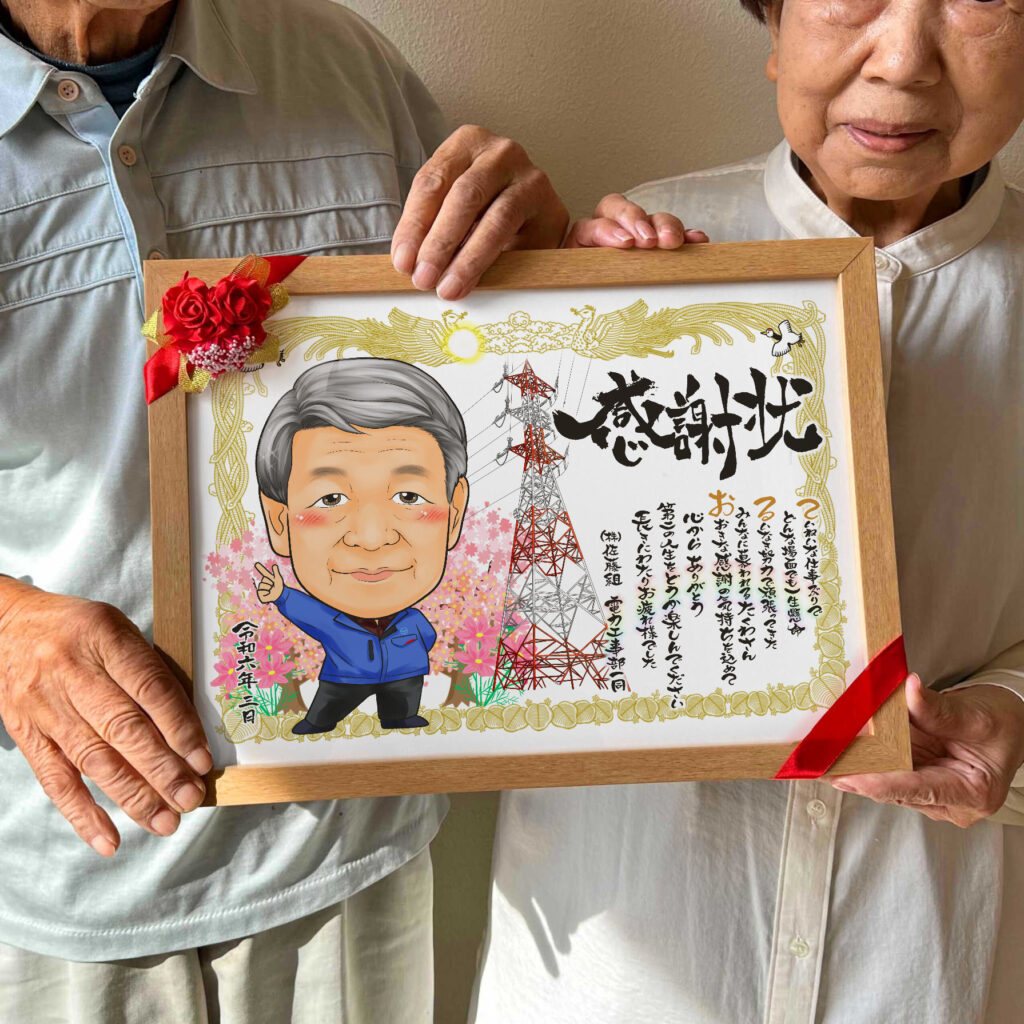 感謝状
ていねいな仕事ぶりで
どんな場面でも一生懸命
るいなき努力で頑張ってきた
みんなに慕われるたくわさん
おおきな感謝の気持ちを込めて
心からありがとう
第二の人生もどうか楽しんでください
長きにわたりお疲れ様でした
(株)佐藤組 電力工事部一同
令和六年 三月